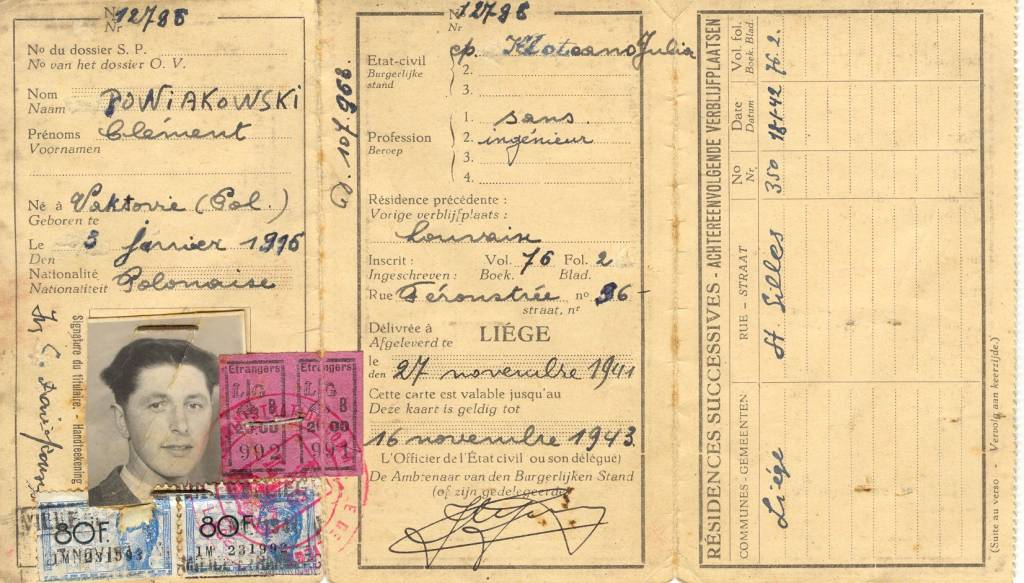 Nº 12798
Nr
Nº du dossier S. P.
Nº van het dossier O. V.
Nom
Naam
POWIAKOWSKI
Prénoms Clément
Voornamen
Né à (Pol.)
Geboren te
Le 3 janvier 1916
Den
Nationalité Polonaise
Nationaliteit
Signature du titulaire. - Handteekening
Etrangers Etrangers
LIG LIG
B B
992 992
80F. 80F.
Nº 12798
Nr
D. 107.968.
Etat-civil
Burgerlijke
stand
ép. Julia
2.
3.
Profession
Beroep
1. sans.
2. ingénieur
3.
4.
Résidence précédente :
Vorige verblijfplaats :
Louvain
Inscrit : Vol. 76 Fol. 2
Ingeschreven : Boek. Blad.
Rue Féronstrée nº 96-
straat, nr
Délivrée à
Afgeleverd te
LIÉGE
le
den
27 novembre 1941
Cette carte est valable jusqu'au
Deze kaart is geldig tot
16 novembre 1943.
L'Officier de l'État civil ou son délégué)
De Ambtenaar van den Burgerlijken Stand
(of zijn gedelegeerde)
RÉSIDENCES SUCCESSIVES - ACHTEREENVOLGENDE VERBLIJFPLAATSEN
COMMUNES - GEMEENTEN
RUE - STRAAT
No
Nr.
Date
Datum
Vol. fol.
Boek. Blad.
Liége St Gilles 350 18-1-42 76. 2.
(Suite au verso - Vervolg aan keerzijde.)